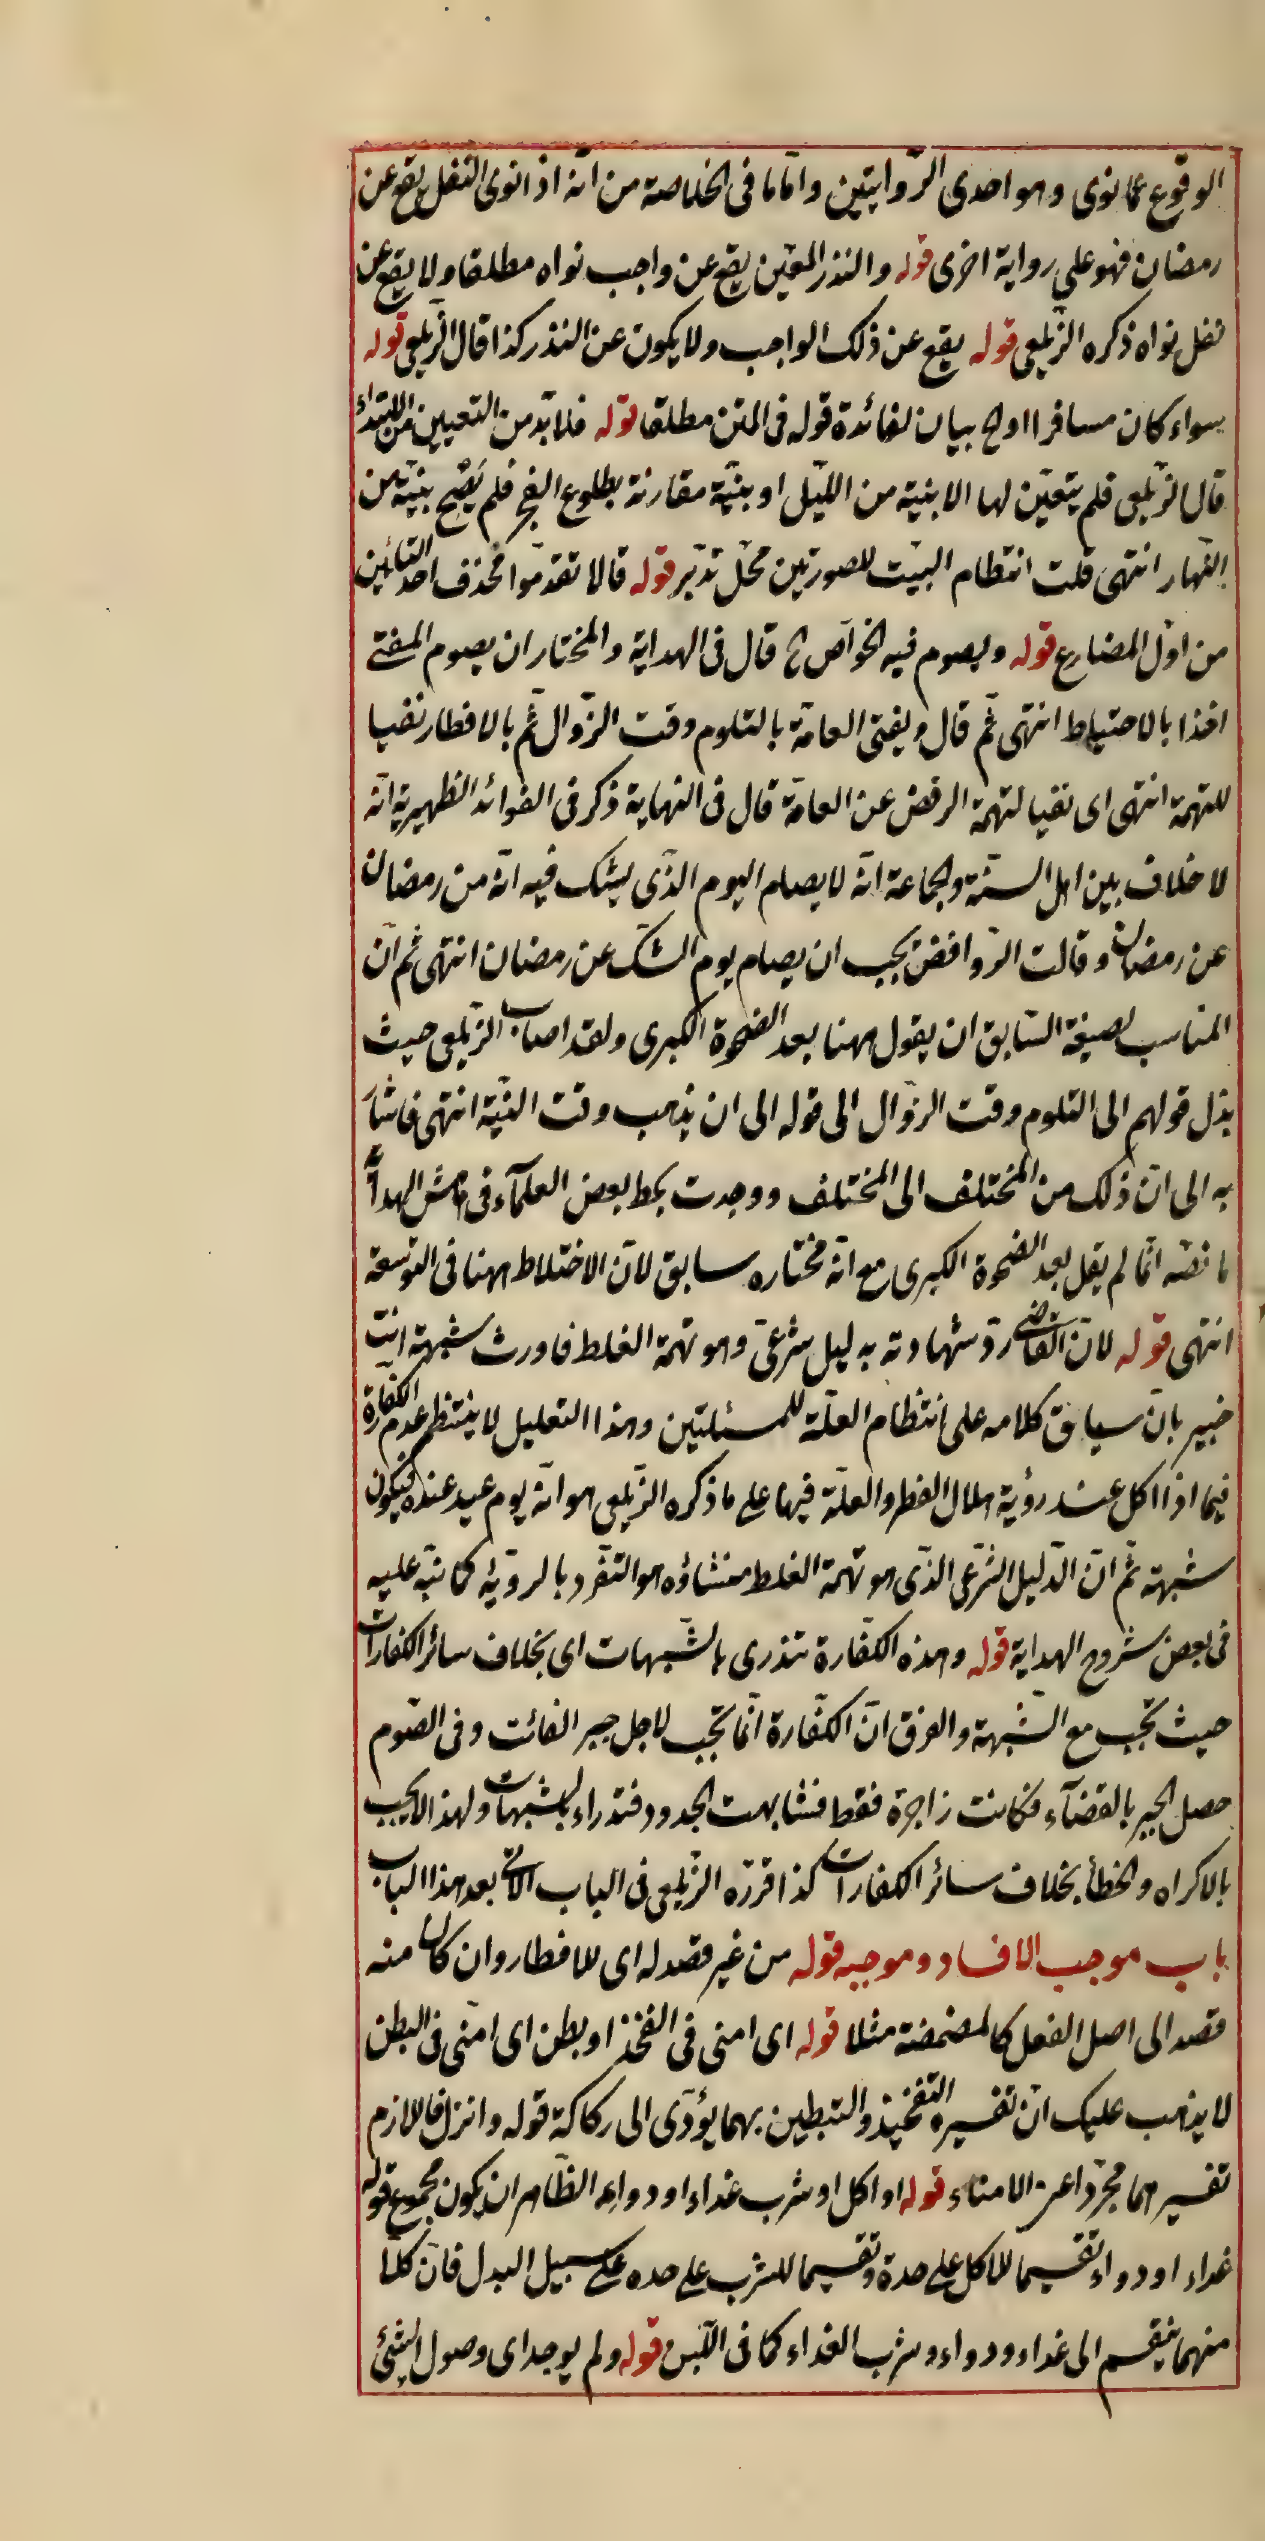 الوقوع عما نوى وهو احدى الروايتين واما ما فى الخلاصة من انه اذا نوى النفل يقع عن
رمضان فهو على رواية اخرى قوله والنذر المعين يقع عن واجب نواه مطلقا ولا يقع عن
نفل نواه ذكره الزيلعى قوله يقع عن ذلك الواجب ولا يكون عن النذر كذا قال الزيلعى قوله
سواء كان مسافرا او لا الخ بيان لفائدة قوله فى المتن مطلقا قوله فلا بد من التعيين من الابتداء
قال الزيلعى فلم يتعين لها الا بنية من الليل او بنية مقارنة بطلوع الفجر فلم يصح بنية من
النهار انتهى قلت انتظام البيت للصورتين محل تدبر قوله قالا تقدموا محذف احد التائين
من اول المضارع قوله ويصوم فيه الخواص الخ قال فى الهداية والمختار ان يصوم المفتى
اخذا بالاحتياط انتهى ثم قال ويفتى العامة بالتلوم وقت الزوال ثم بالافطار نفيا
للتهمة انتهى اى نفيا لتهمة الرفض عن العامة قال فى النهاية ذكر فى الفوائد الظهيرية انه
لا خلاف بين اهل السنة والجماعة انه لا يصام اليوم الذى يشك فيه انه من رمضان
عن رمضان وقالت الروافض يجب ان يصام يوم الشك عن رمضان انتهى ثم ان
المناسب لصيغة السابق ان يقول ههنا بعد الضحوة الكبرى ولقد اصاب الزيلعى حيث
بدل قولهم الى التلوم وقت الزوال الى قوله الى ان يذهب وقت النية انتهى فاشار
به الى ان ذلك من المختلف الى المختلف ووجدت بخط بعض العلماء فى هامش الهداية
ما نصه انما لم يقل بعد الضحوة الكبرى مع انه مختاره سابق لان الاختلاط ههنا فى التوسعة
انتهى قوله لان القاضى رد شهادته بدليل شرعى وهو تهمة الغلط فاورث شبهة انت
خبير بان سياق كلامه على انتظام العلة للمسئلتين وهذا التعليل لا ينتظم عدم الكفارة
فيما اذا اكل عند رؤية هلال الفطر والعلة فيها على ما ذكره الزيلعى هو انه يوم عيد عنده فيكون
شبهة ثم ان الدليل الشرعى الذى هو تهمة الغلط منشاؤه هو التفرد بالرؤية كما نبه عليه
فى بعض شروح الهداية قوله وهذه الكفارة تندرى بالشبهات اى بخلاف سائر الكفارات
حيث تجب مع الشبهة والفرق ان الكفارة انما تجب لاجل جبر الفائت وفى الصوم
حصل الجبر بالقضاء فكانت زاجرة فقط فشابهت الحدود فتدراء بالشبهات ولهذا لا يجب
بالاكراه والخطأ بخلاف سائر الكفارات كذا قرره الزيلعى فى الباب الاتى بعد هذا الباب
باب موجب الافساد وموجبه قوله من غير قصد له اى للافطار وان كان منه
قصد الى اصل الفعل كالمضمضة مثلا قوله اى امنى فى الفخذ او بطن اى امنى فى البطن
لا يذهب عليك ان تفسيره التفخيذ والتبطين بهما يؤدى الى ركاكة قوله وانزل فاللازم
تفسيرهما مجردا عن الامناء قوله او اكل او شرب غداء او دواء الظاهر ان يكون مجموع قوله
غداء او دواء تقسيما للاكل على حدة وتقسيما للشرب على حده على سبيل البدل فان كلا
منهما ينقسم الى غداء ودواء وشرب الغداء كما فى اللبن قوله ولم يوجد اى وصول الشئ